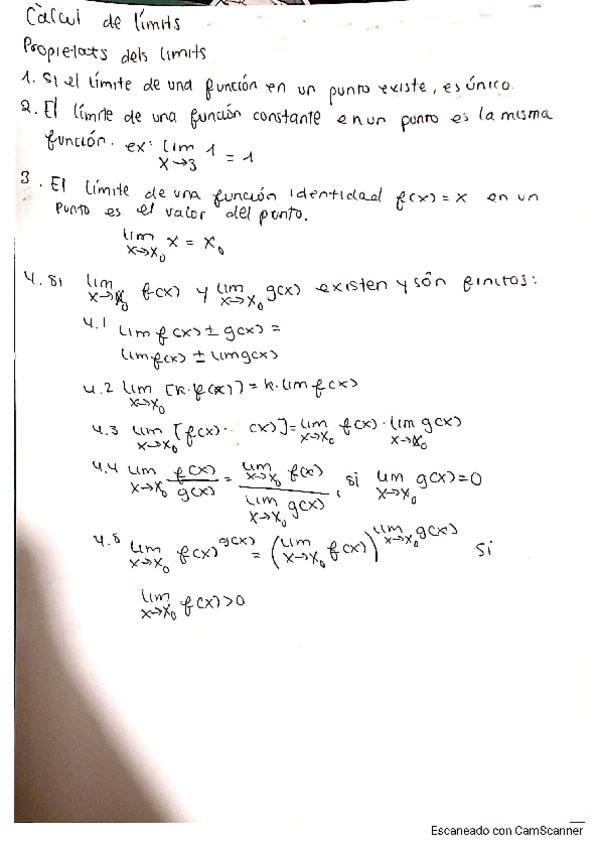 Càlcul de límits
Propietats dels límits
1. Si el límite de una función en un punto existe, es único.
2. El límite de una función constante en un punto es la misma
función. ex: lim x→3 1 = 1
3. El límite de una función identidad f(x) = x en un
punto es el valor del punto.
lim x→x₀ x = x₀
4. Si lim x→x₀ f(x) y lim x→x₀ g(x) existen y són finitos:
4.1 lim f(x) ± g(x) =
lim f(x) ± lim g(x)
4.2 lim x→x₀ [k·f(x)] = k·lim f(x)
4.3 lim x→x₀ [f(x)· (x)] = lim x→x₀ f(x) · lim x→x₀ g(x)
4.4 lim x→x₀ f(x)/g(x) = lim x→x₀ f(x) / lim x→x₀ g(x), si lim x→x₀ g(x) = 0
4.5 lim x→x₀ f(x)^g(x) = (lim x→x₀ f(x))^lim x→x₀ g(x) si
lim x→x₀ f(x) > 0
Escaneado con CamScanner